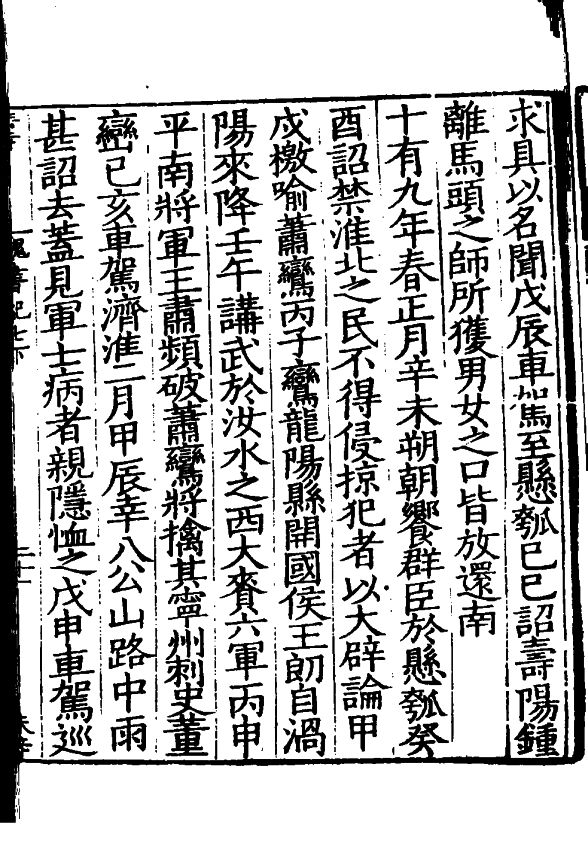 求具以名聞戊辰車駕至懸瓠己巳詔壽陽鍾
離馬頭之師所獲男女之口皆放還南
十有九年春正月辛未朔朝饗群臣於懸瓠癸
酉詔禁淮北之民不得侵掠犯者以大辟論甲
戍檄喻蕭鸞丙子鸞龍陽縣開國侯王朗自渦
陽來降壬午講武於汝水之西大賚六軍丙申
平南將軍王肅頻破蕭鸞將擒其寧州刺史董
巒己亥車駕濟淮二月甲辰幸八公山路中雨
甚詔去蓋見軍士病者親隱恤之戊申車駕巡
魏書紀七下